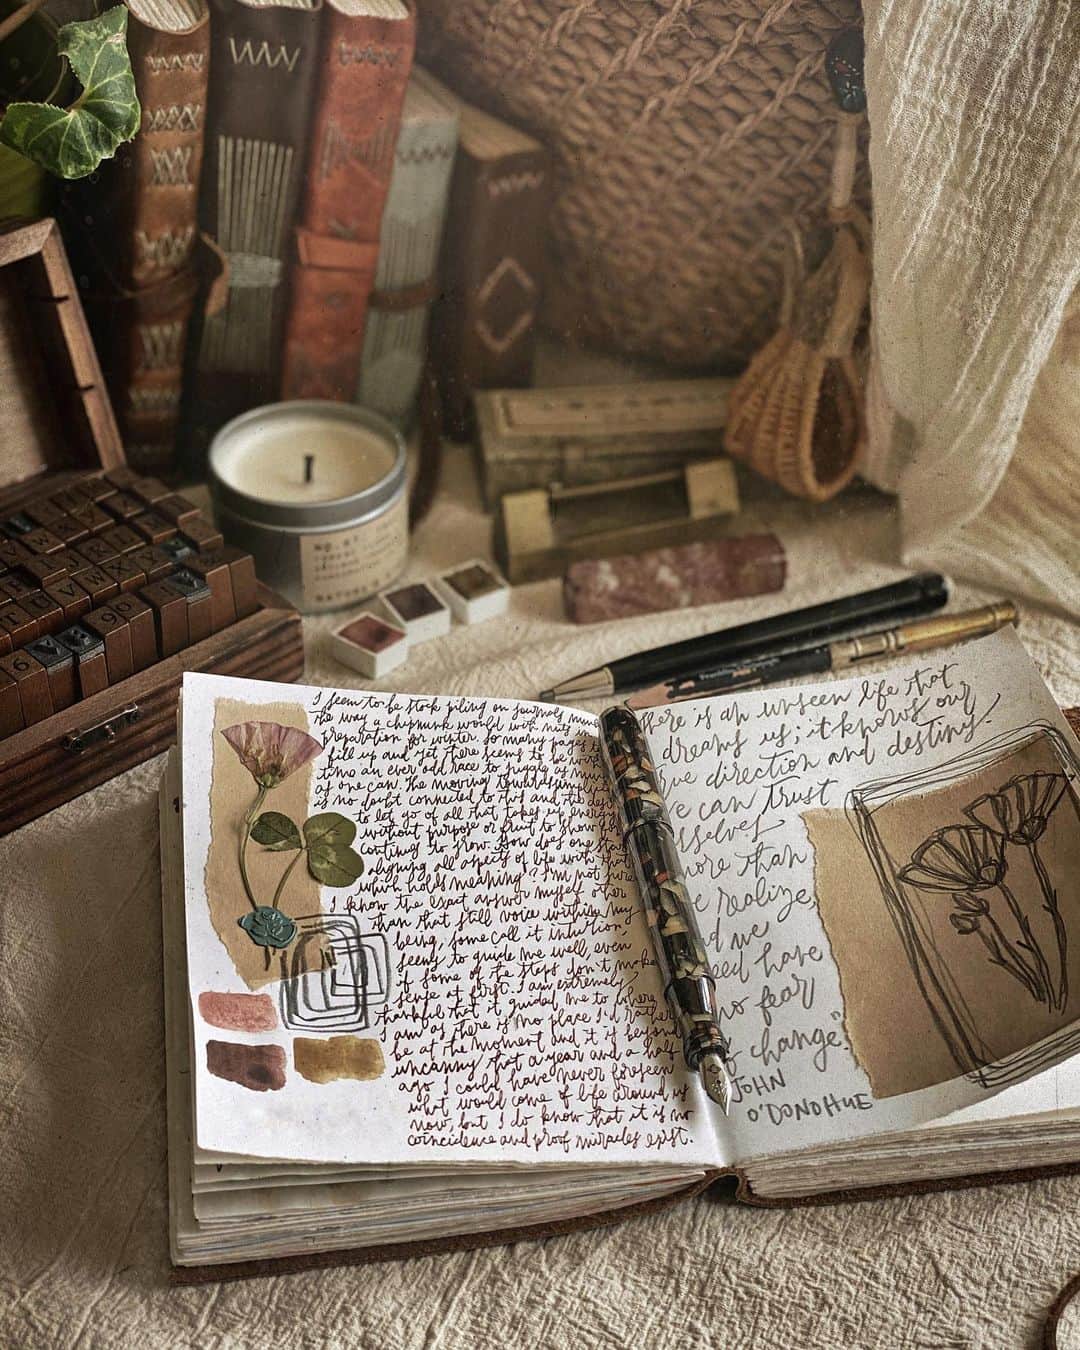 I seem to be stock piling on journals
the way a chipmunk would with nuts in
preparation for winter. So many pages to
fill up and yet there seems to be
time an ever odd race to juggle as
as one can. The moving towards
is no doubt connected to this and the
to let go of all that takes up energy
without purpose or fruit to show for
continue to grow. How does one start
aligning all aspects of life with that
which holds meaning? I'm not sure
I know the exact answer myself other
than that still voice within my
being, some call it intuition,
seems to guide me well, even
if some of the steps don't make
sense at first. I am extremely
thankful that it guided me to where
I am as there is no place I'd rather
be at the moment and it is beyond
uncanny that a year and a half
ago I could have never foreseen
what would come of life around us
now, but I do know that it is no
coincidence and proof miracles exist.
There is an unseen life that
dreams us; it knows our
true direction and destiny.
We can trust
ourselves
more than
we realize,
and we
need have
no fear
of change."
JOHN
O'DONOHUE
No.
NATURE